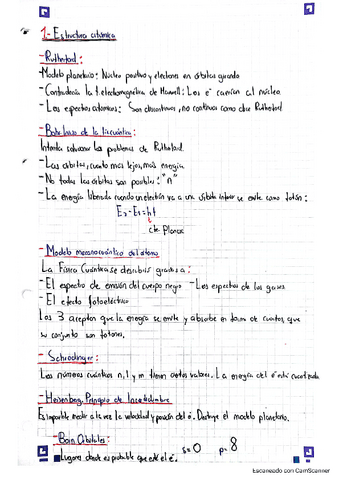 1- Estructura atómica
- Rutherford:
- Modelo planetario: Núcleo positivo y electrones en órbitas girando
- Contradecía la t electromagnética de Maxwell: Los e⁻ caerían al núcleo
- Los espectros atómicos: Son discontinuos, no continuos como dice Rutherford
- Bohr: base de la f.cuántica:
Intenta solucionar los problemas de Rutherford.
- Las órbitas, cuanto más lejos, más energía
- No todas las órbitas son posibles: "n"
- La energía liberada cuando un electrón va a una órbita inferior se emite como fotón:
E₂ - E₁ = hf
cte Planck
- Modelo mecanocuántico del átomo
La Física Cuántica se describió gracias a:
- El espectro de emisión del cuerpo negro - Los espectros de los gases
- El efecto fotoeléctrico
Los 3 aceptan que la energía se emite y absorbe en forma de cuantos, que
su conjunto son fotones.
- Schrodinger:
Los números cuánticos n, l y m tienen ciertos valores. La energía del e⁻ está cuantizada
- Heisenberg. Principio de Incertidumbre
Es imposible medir a la vez la velocidad y posición del e⁻. Destruye el modelo planetario.
- Born Orbitales:
Lugares donde es probable que esté el e⁻. s= O p= 8
Escaneado con CamScanner